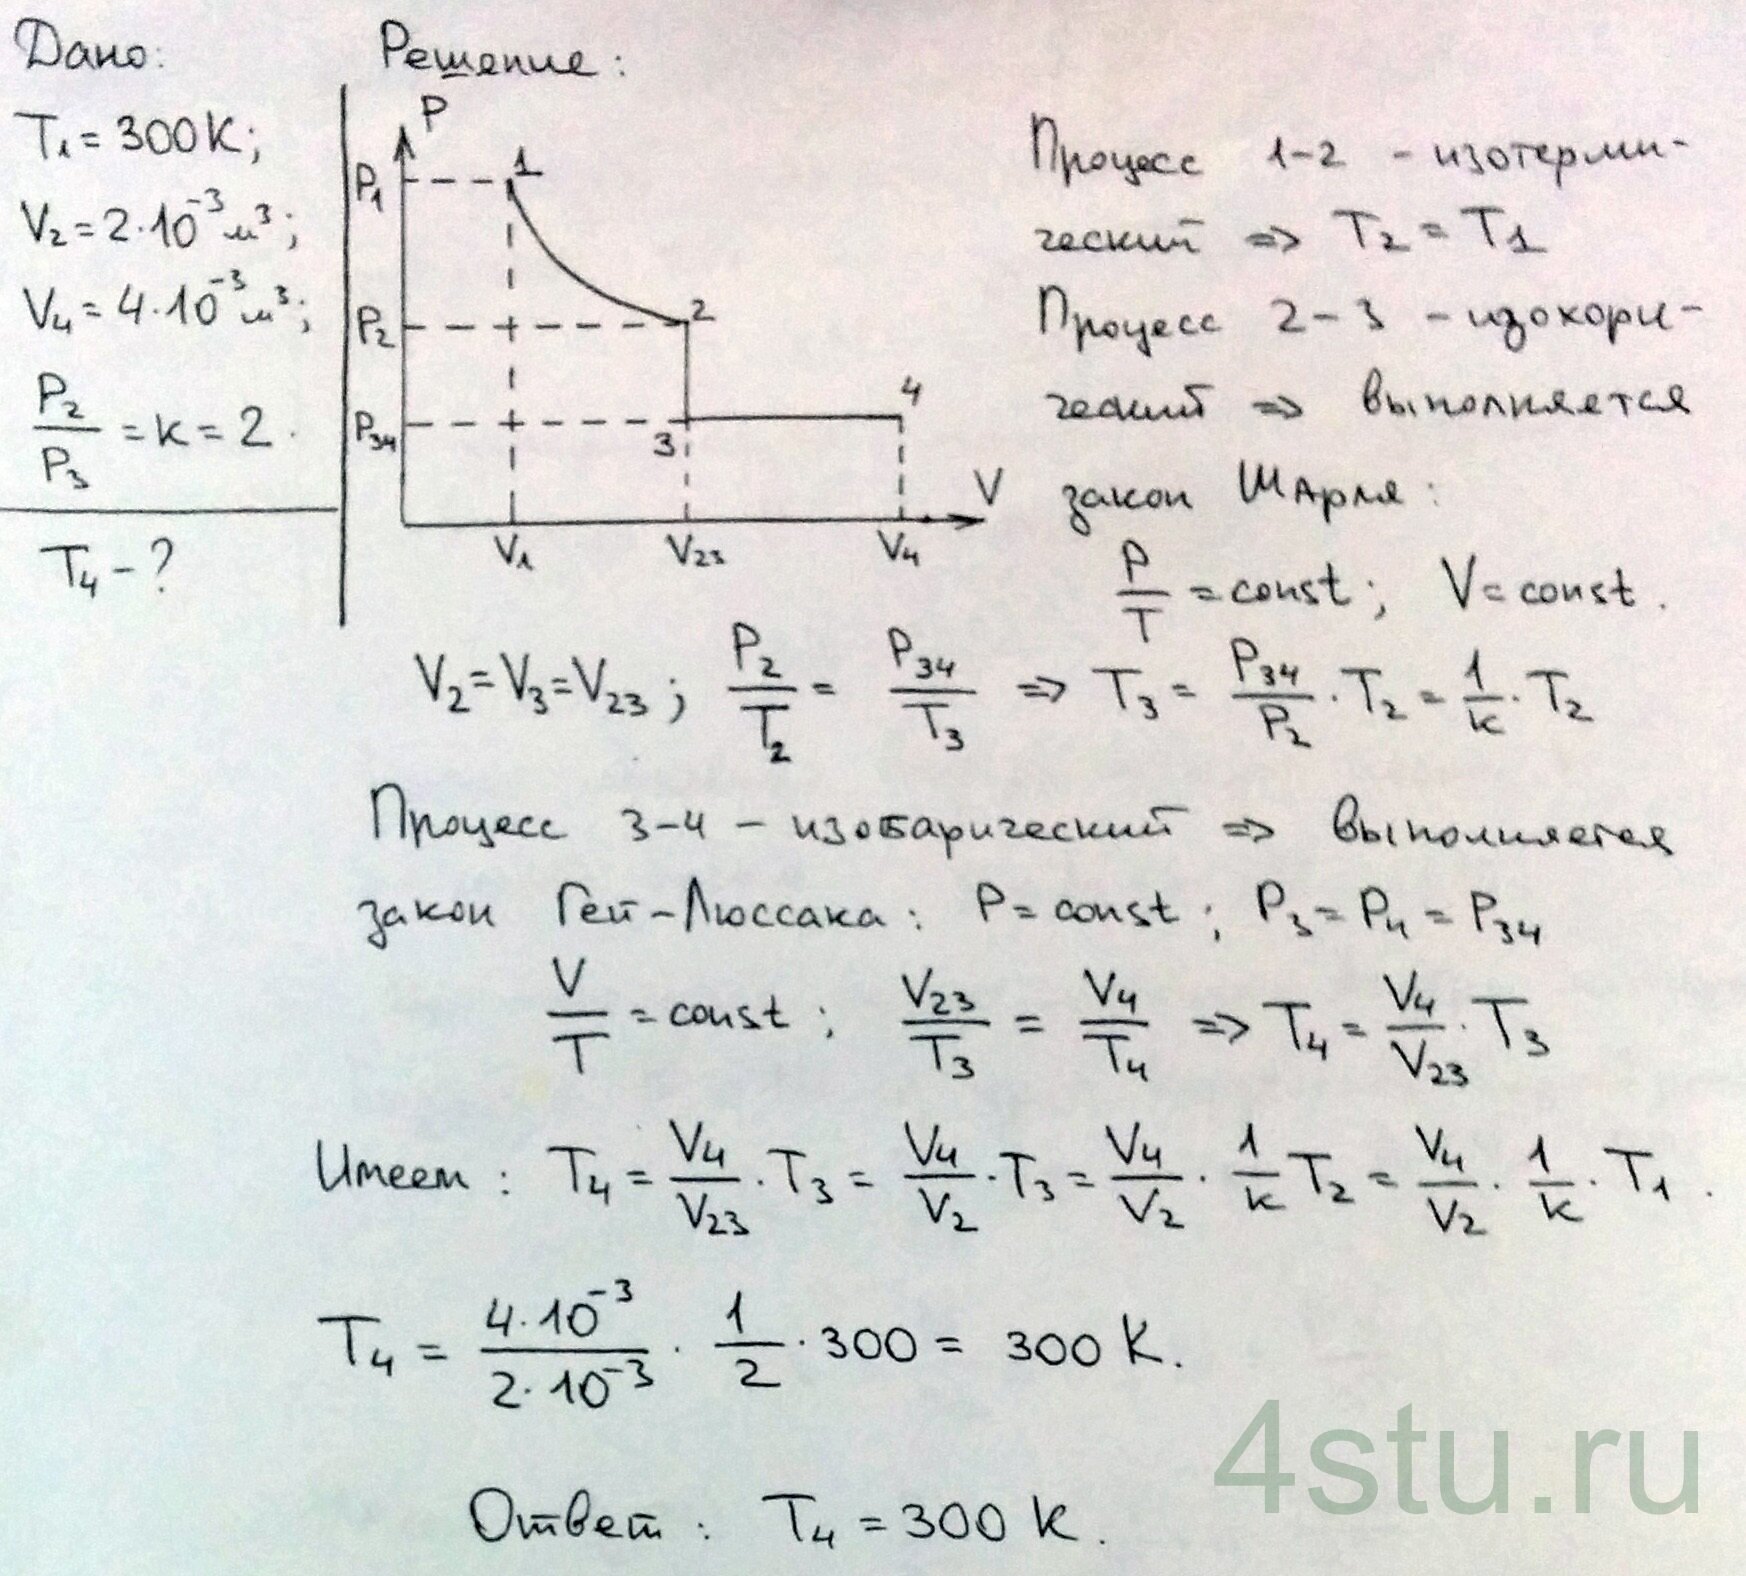 Дано:
T₁ = 300 K;
V₂ = 2·10⁻³ м³;
V₄ = 4·10⁻³ м³;
P₂/P₃ = k = 2.
T₄ - ?
Решение:
P
P₁
1
P₂
2
P₃₄
3
4
V
V₁ V₂₃ V₄
Процесс 1-2 - изотерми-
ческий => T₂ = T₁
Процесс 2-3 - изохори-
ческий => выполняется
закон Шарля:
P/T = const; V = const.
V₂ = V₃ = V₂₃; P₂/T₂ = P₃₄/T₃ => T₃ = P₃₄/P₂ · T₂ = 1/k · T₂
Процесс 3-4 - изобарический => выполняется
закон Гей-Люссака: P = const; P₃ = P₄ = P₃₄
V/T = const; V₂₃/T₃ = V₄/T₄ => T₄ = V₄/V₂₃ · T₃
Имеем: T₄ = V₄/V₂₃ · T₃ = V₄/V₂ · T₃ = V₄/V₂ · 1/k T₂ = V₄/V₂ · 1/k · T₁.
T₄ = 4·10⁻³/2·10⁻³ · 1/2 · 300 = 300 K.
Ответ: T₄ = 300 K.
4stu.ru